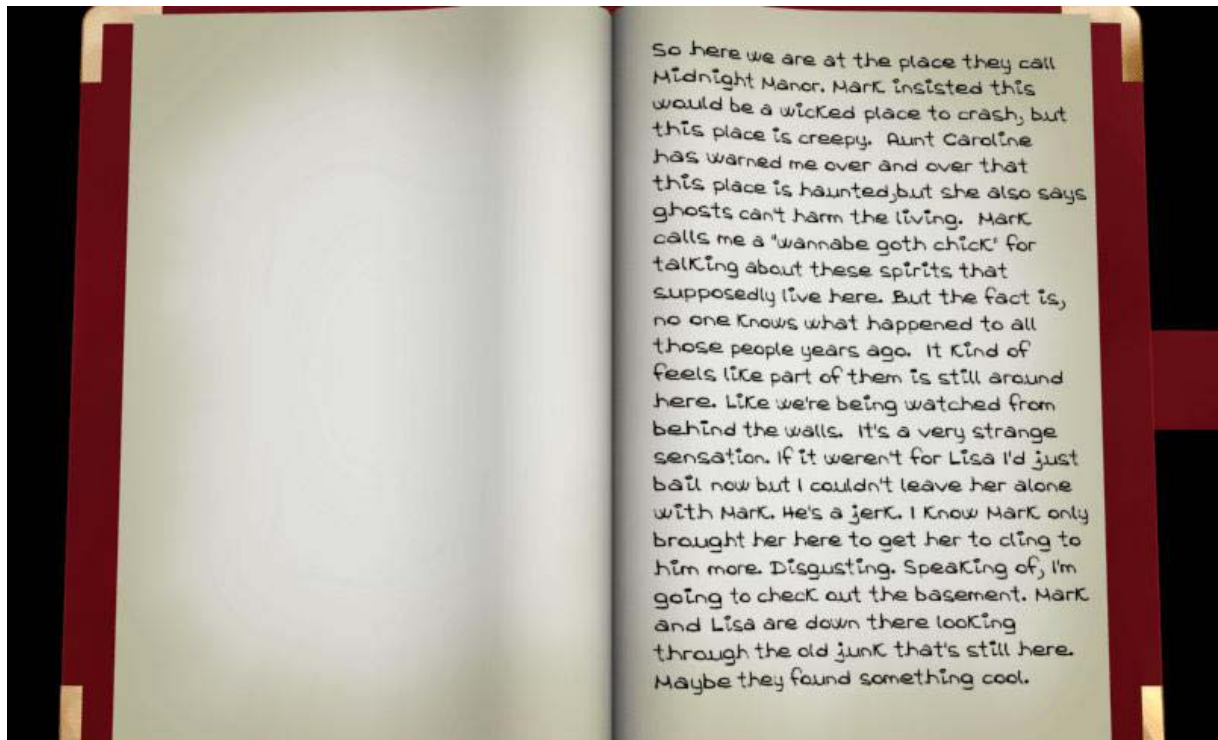 So here we are at the place they call
Midnight Manor. Mark insisted this
would be a wicked place to crash, but
this place is creepy.  Aunt Caroline
has warned me over and over that
this place is haunted,but she also says
ghosts can't harm the living.  Mark
calls me a "wannabe goth chick" for
talking about these spirits that
supposedly live here. But the fact is,
no one knows what happened to all
those people years ago.  It kind of
feels like part of them is still around
here. Like we're being watched from
behind the walls.  It's a very strange
sensation. If it weren't for Lisa I'd just
bail now but I couldn't leave her alone
with Mark. He's a jerk. I know Mark only
brought her here to get her to cling to
him more. Disgusting. Speaking of, I'm
going to check out the basement. Mark
and Lisa are down there looking
through the old junk that's still here.
Maybe they found something cool.